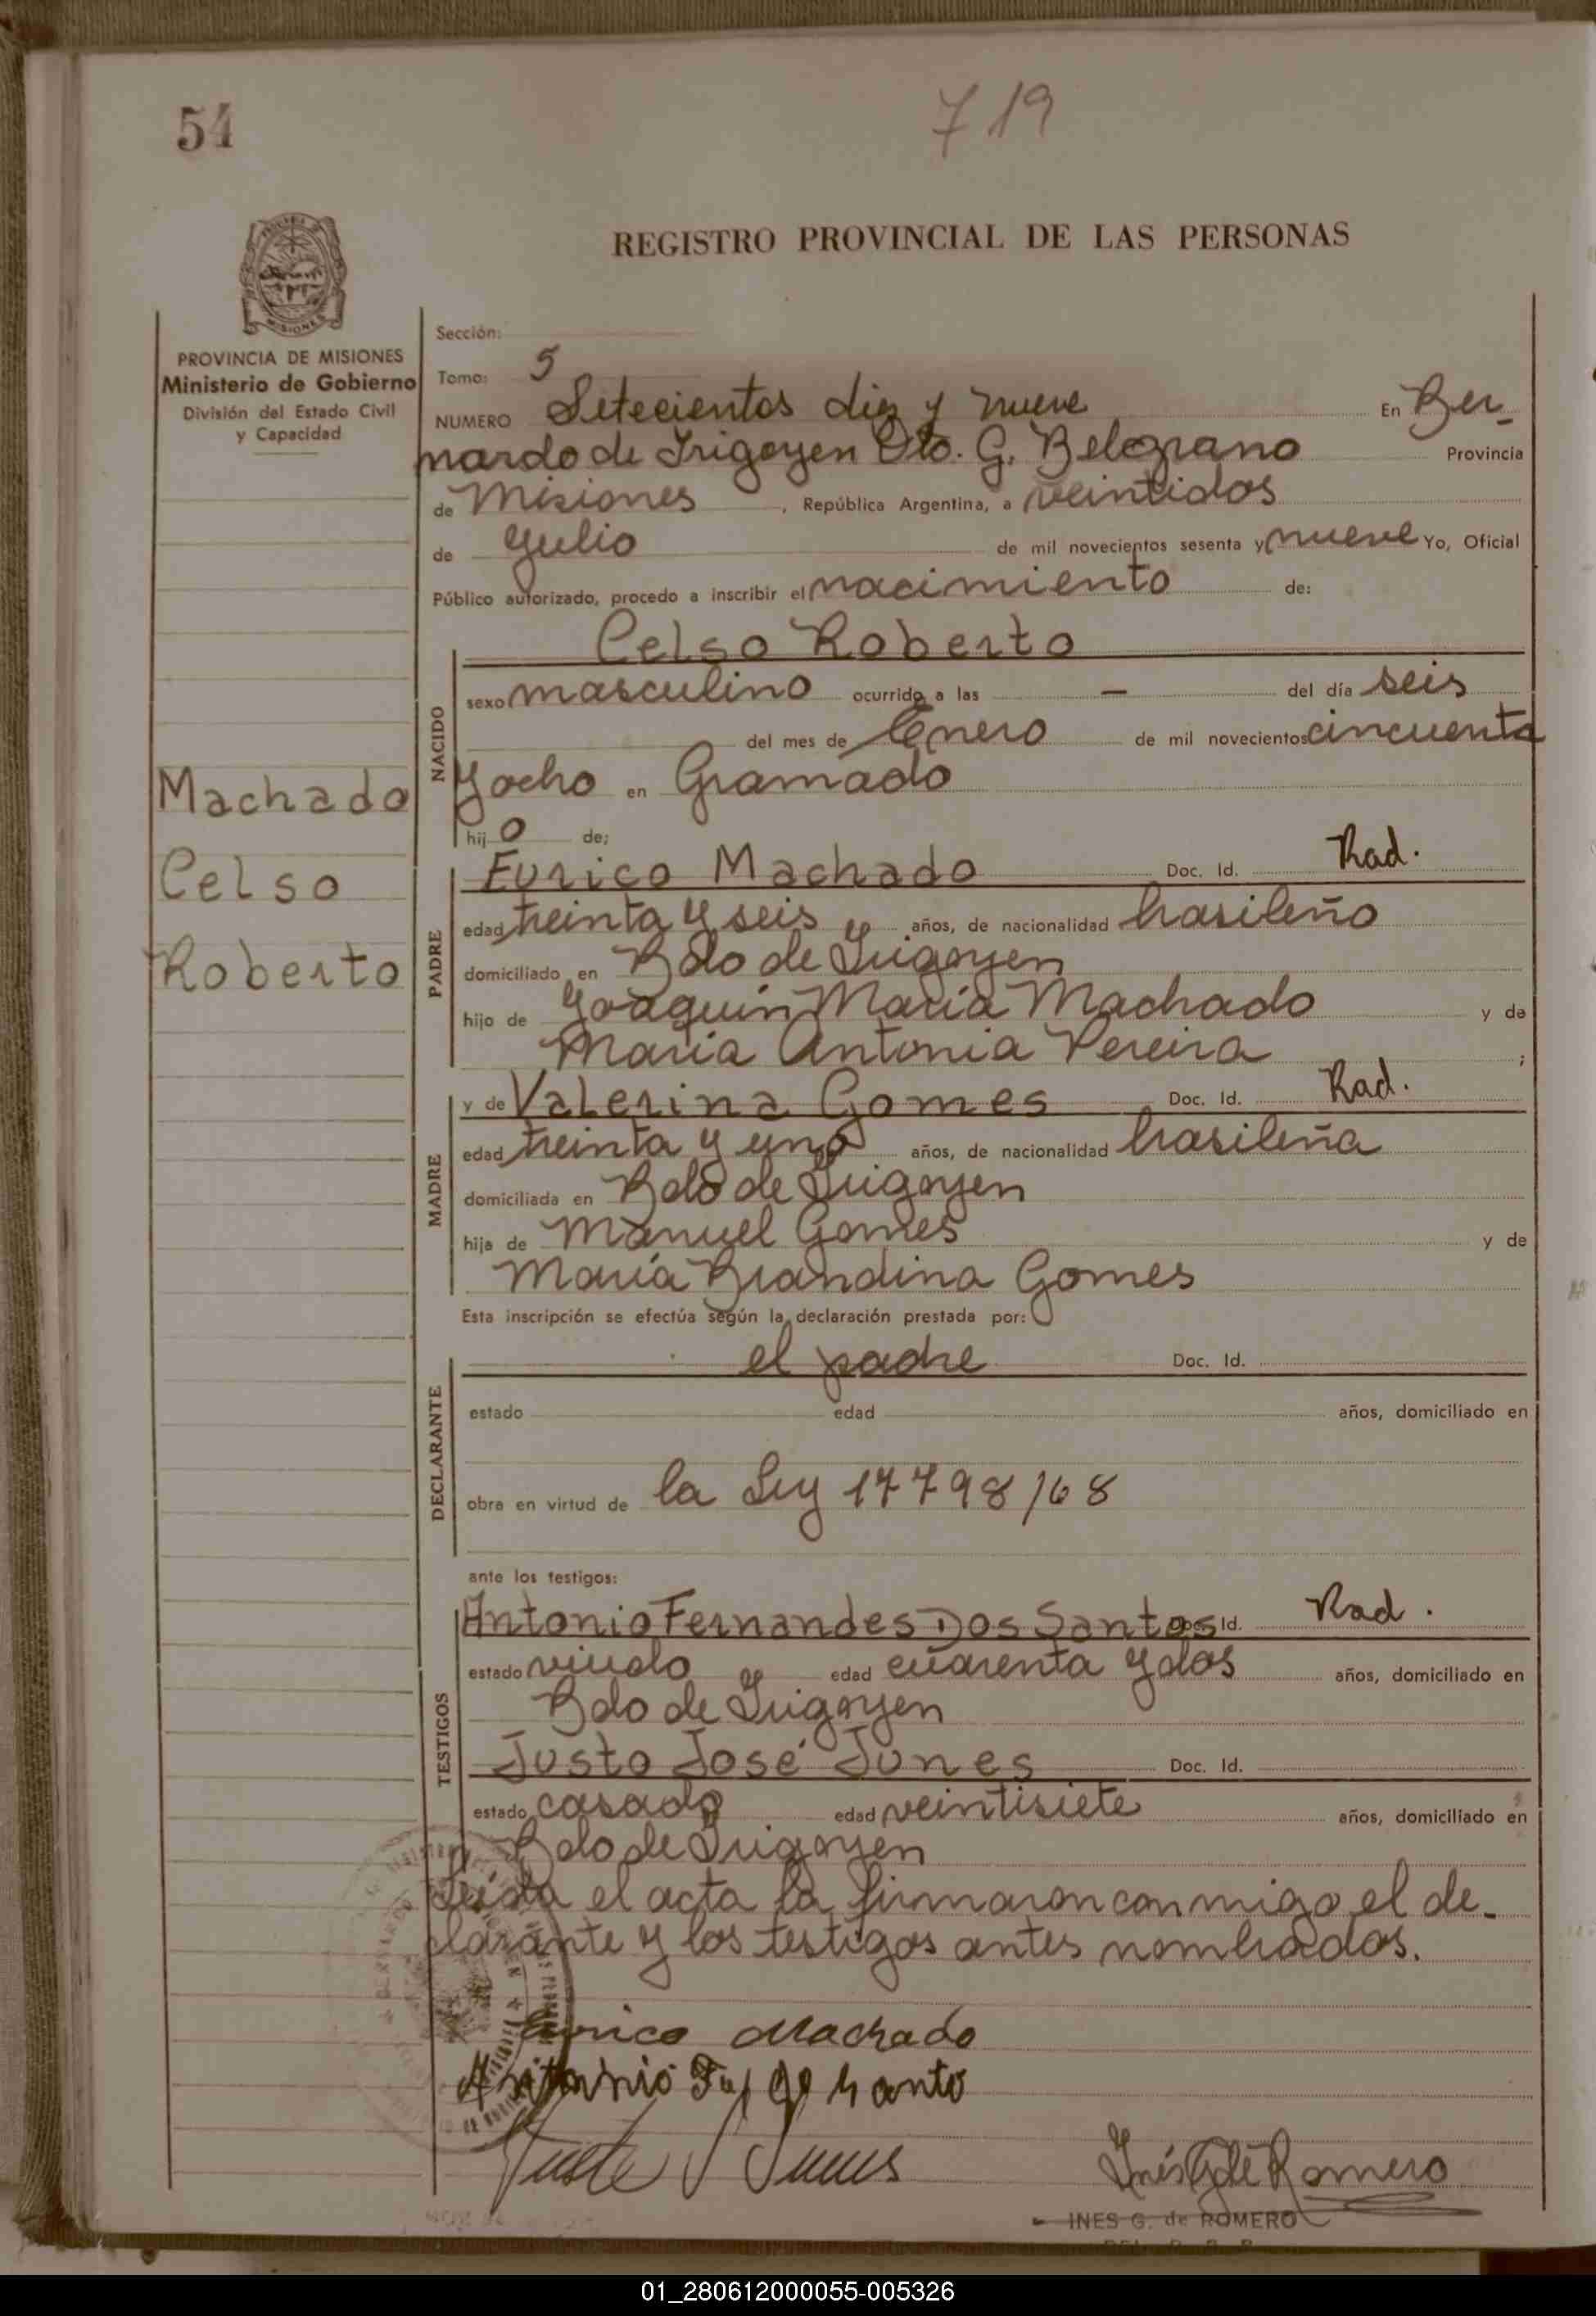 54
719
REGISTRO PROVINCIAL DE LAS PERSONAS
MISIONES
PROVINCIA DE MISIONES
Ministerio de Gobierno
División del Estado Civil
y Capacidad
Machado
Celso
Roberto
Sección:
Tomo: 5
NUMERO Setecientos diez y nueve En Ber-
nardo de Irigoyen Dto. G. Belgrano Provincia
de Misiones, República Argentina, a veintidos
de Julio de mil novecientos sesenta y nueve Yo, Oficial
Público autorizado, procedo a inscribir el nacimiento de:
NACIDO
Celso Roberto
sexo masculino ocurrido a las — del día seis
del mes de Enero de mil novecientos cincuenta
y ocho en Gramado
hijo de:
PADRE
Eurico Machado Doc. Id. Rad.
edad treinta y seis años, de nacionalidad brasileño
domiciliado en Bdo de Irigoyen
hijo de Joaquin Maria Machado y de
Maria Antonia Pereira ;
MADRE
y de Valerina Gomes Doc. Id. Rad.
edad treinta y uno años, de nacionalidad brasileña
domiciliada en Bdo de Irigoyen
hija de Manuel Gomes y de
María Brandina Gomes
Esta inscripción se efectúa según la declaración prestada por:
DECLARANTE
el padre Doc. Id.
estado edad años, domiciliado en
obra en virtud de la Ley 17798/68
ante los testigos:
TESTIGOS
Antonio Fernandes Dos Santos Doc. Id. Rad.
estado viudo edad cuarenta y dos años, domiciliado en
Bdo de Irigoyen
Justo José Junes Doc. Id.
estado casado edad veintisiete años, domiciliado en
Bdo de Irigoyen
Leida el acta la firmaron conmigo el de-
clarante y los testigos antes nombrados.
Eurico Machado
Antonio
Inés G de Romero
INES G. de ROMERO
01_280612000055-005326